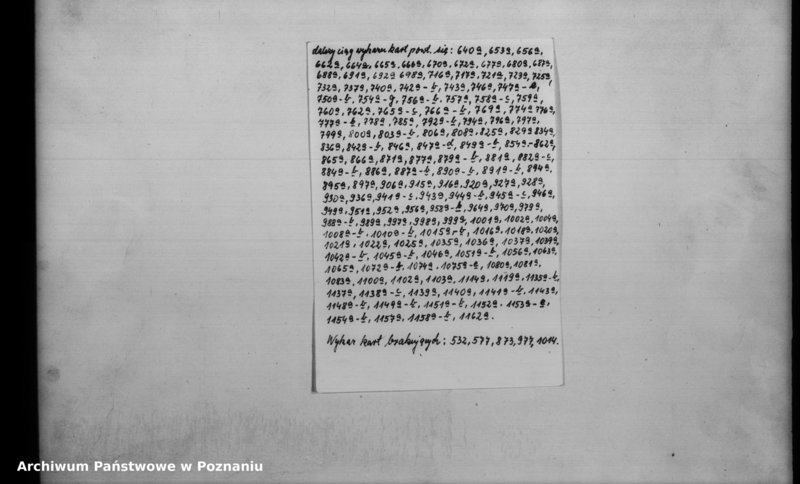 dalszy ciąg wykazu kart powt. się: 640a, 653a, 656a,
662a, 664a, 665a, 666a, 670a, 672a, 677a, 680a, 687a,
688a, 691a, 692a, 698a, 716a, 717a, 721a, 723a, 725a,
732a, 737a, 740a, 742a-b, 743a, 746a, 747a-
750a-b, 754a-g, 756a-b, 757a, 758a-c, 759a,
760a, 762a, 765a-c, 766a-b, 769a, 774a, 776a,
777a-b, 778a, 785a, 792a-b, 794a, 796a, 797a,
799a, 800a, 803a-b, 806a, 808a, 825a, 829a, 834a,
836a, 842a-b, 846a, 847a-d, 849a-b, 854a, 862a,
865a, 866a, 871a, 877a, 879a-b, 881a, 882a-c,
884a-b, 886a, 887a-b, 890a-b, 891a-b, 894a,
895a, 897a, 906a, 915a, 916a, 920a, 927a, 928a,
930a, 936a, 941a-c, 943a, 944a-b, 945a-c, 946a,
949a, 951a, 952a, 956a, 958a-b, 964a, 970a, 979a,
988a-b, 989a, 997a, 998a, 999a, 1001a, 1002a, 1004a,
1008a-b, 1010a-b, 1015a-b, 1016a, 1018a, 1020a,
1021a, 1022a, 1025a, 1035a, 1036a, 1037a, 1039a,
1042a-b, 1045a-b, 1046a, 1051a-b, 1056a, 1063a,
1065a, 1072a-b, 1074a, 1075a-e, 1080a, 1081a,
1083a, 1100a, 1102a, 1103a, 1114a, 1119a, 1135a-b,
1137a, 1138a-c, 1139a, 1140a, 1141a-b, 1143a,
1148a-b, 1149a-b, 1151a-b, 1152a, 1153a-e,
1154a-b, 1157a, 1158a-b, 1162a.
Wykaz kart brakujących: 532, 577, 873, 977, 1014.
Archiwum Państwowe w Poznaniu